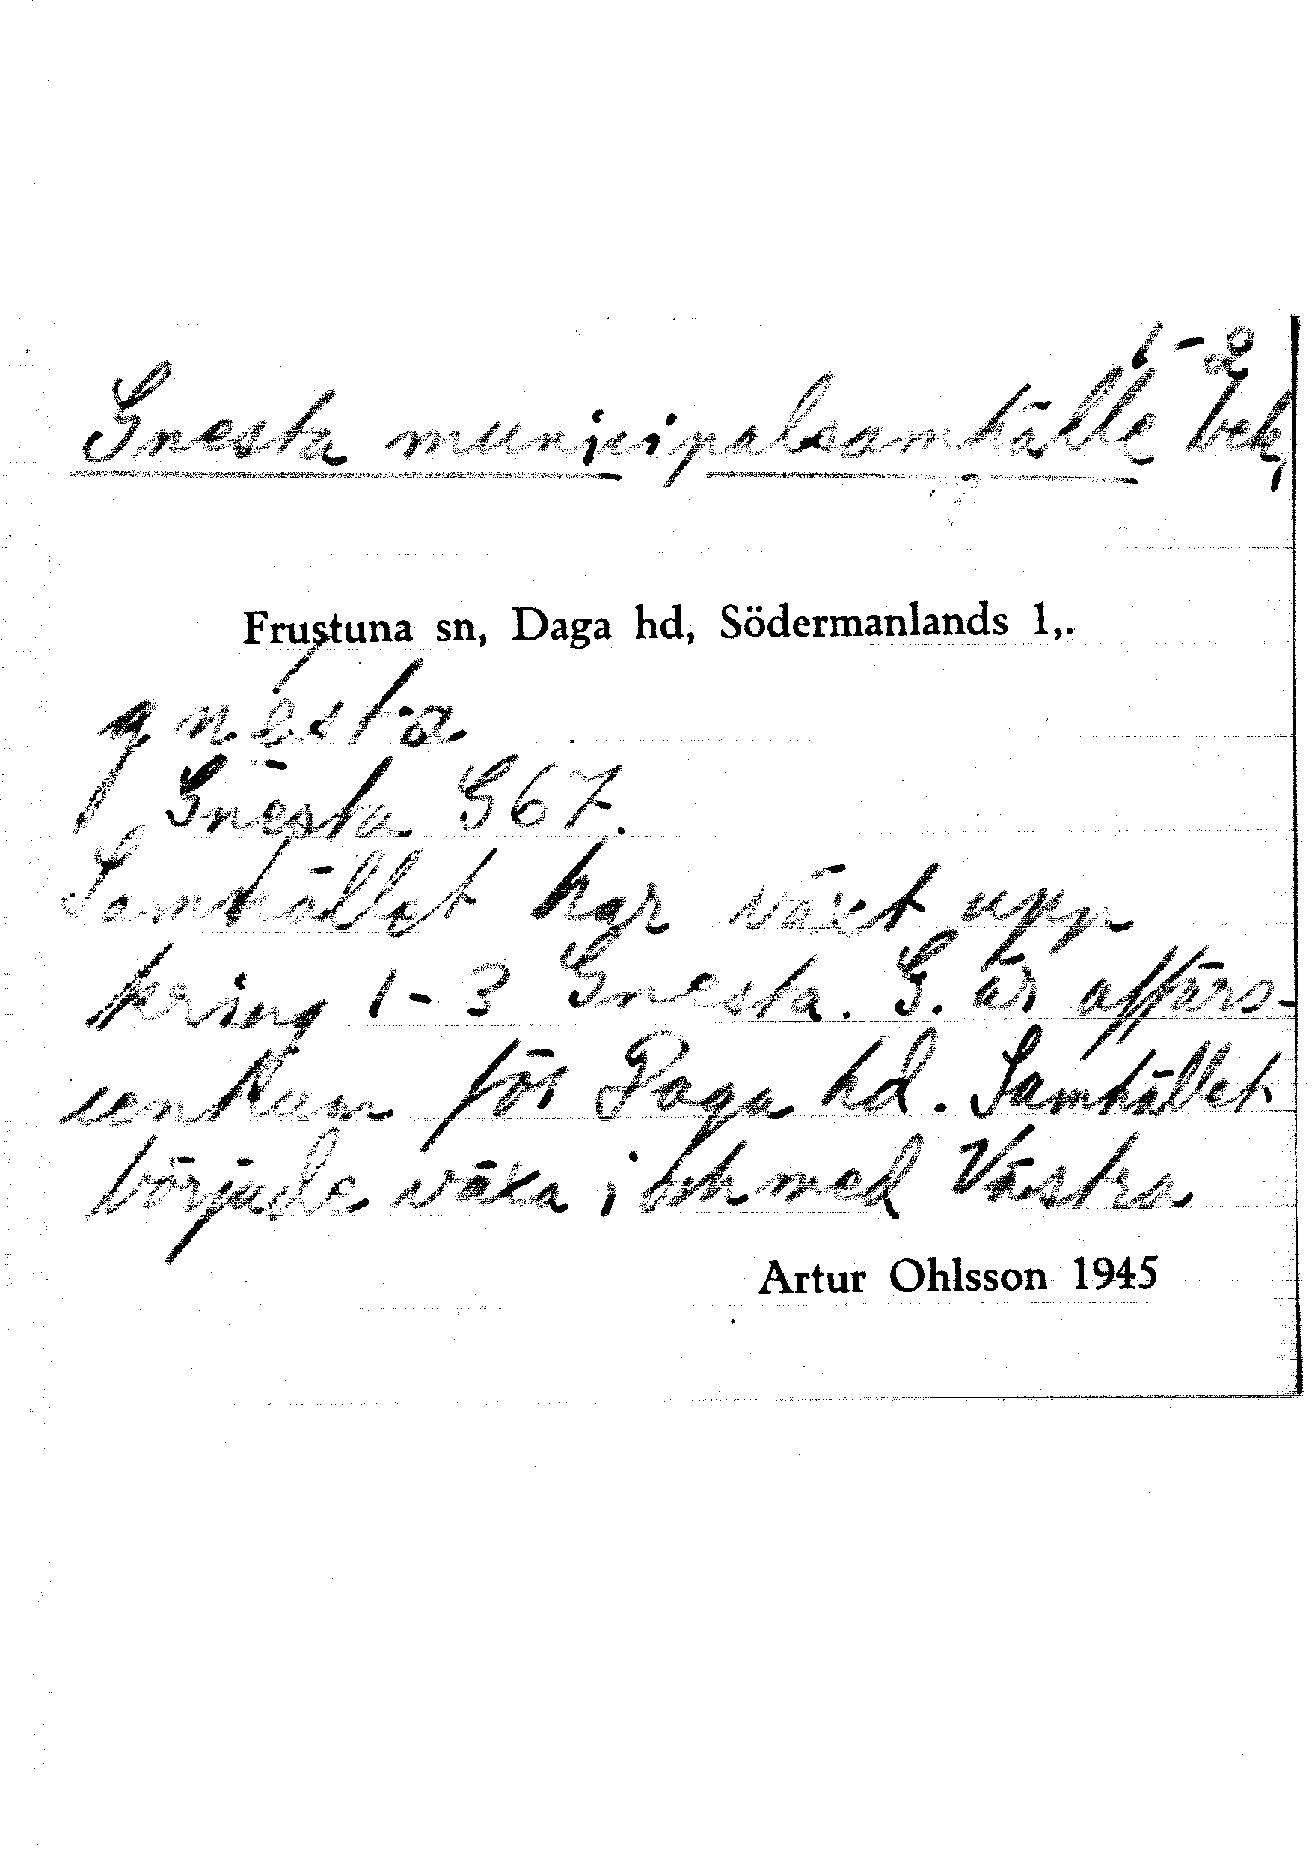 1-2
Gnesta municipalsamhälle bek,
Frustuna sn, Daga hd, Södermanlands l,.
gnésta
Gnesta G67.
Samhället har växt upp
kring 1-3 Gnesta. G. är affärs-
centrum för Daga hd. Samhället
började växa i och med Västra
Artur Ohlsson 1945